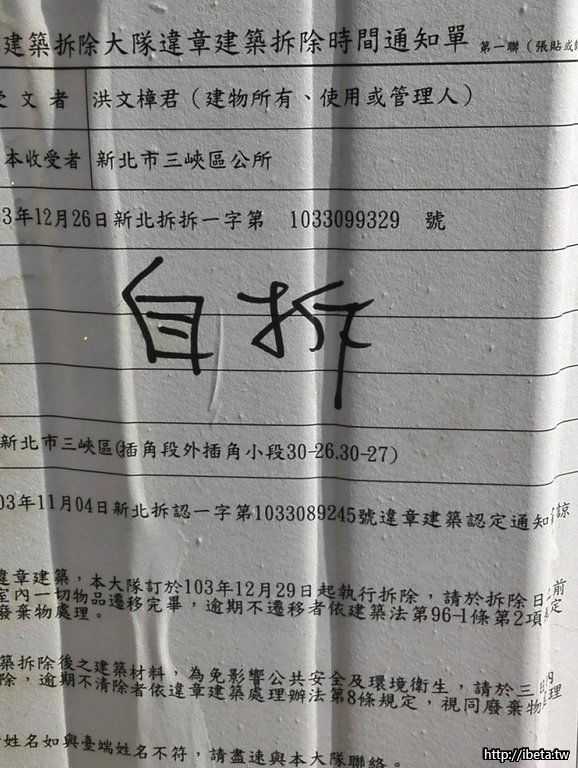 建築拆除大隊違章建築拆除時間通知單 第一聯（張貼或
受文者 洪文樟君（建物所有、使用或管理人）
本收受者 新北市三峽區公所
3年12月26日新北拆拆一字第 1033099329 號
自拆
新北市三峽區(插角段外插角小段30-26.30-27)
03年11月04日新北拆認一字第1033089245號違章建築認定通知 諒
違章建築，本大隊訂於103年12月29日起執行拆除，請於拆除日 前
室內一切物品遷移完畢，逾期不遷移者依建築法第96-1條第2項 定
廢棄物處理。
築拆除後之建築材料，為免影響公共安全及環境衛生，請於三日內
除，逾期不清除者依違章建築處理辦法第8條規定，視同廢棄物 理
姓名如與臺端姓名不符，請盡速與本大隊聯絡。
http://ibeta.tw